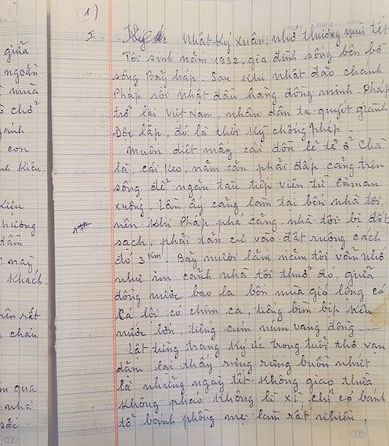 giữa
1)
I
Nhật Ký Xuân, nhớ thương mùi tết
ngoắn
Tôi sinh năm 1932, gia đình sống bên bờ
sông Bảy háp. Sau khi nhật đảo chánh
chỗ
Pháp rồi nhật đầu hàng đồng minh. Pháp
trở lại Việt Nam, nhân dân ta quyết giành
con
Độc lập, đó là thời kỳ chống pháp.
Kiều
Muốn diệt mấy cái đồn lẻ tẻ ở Chà
là, cái Keo, năm căn phải đắp cảng trên
sông để ngăn tàu tiếp viện từ Càmau
xuống. Lần ấy cảng làm tại bên nhà tôi,
nên khi Pháp phá cảng, nhà tôi bị đốt
sạch, phải tản cư vào đất ruộng cách
nay
đó 3 Km. Bảy mươi lăm năm tôi vẫn nhớ
Khách
như in cảnh nhà tôi thuở đó, giữa
đồng nước bao la bốn mùa gió lộng cá
rất
cá lội có chim ca, tiếng bìm bịp kêu
cháu
nước lớn tiếng cúm núm vang đồng.
Lật từng trang ký ức trong tuổi thơ van
dăm lại thấy rưng rưng buồn nhứt
qua
là những ngày tết không giao thừa
nhà
không pháo, không lì xì, chỉ có bánh
sắc
tổ bánh phồng mẹ làm rất nhiều